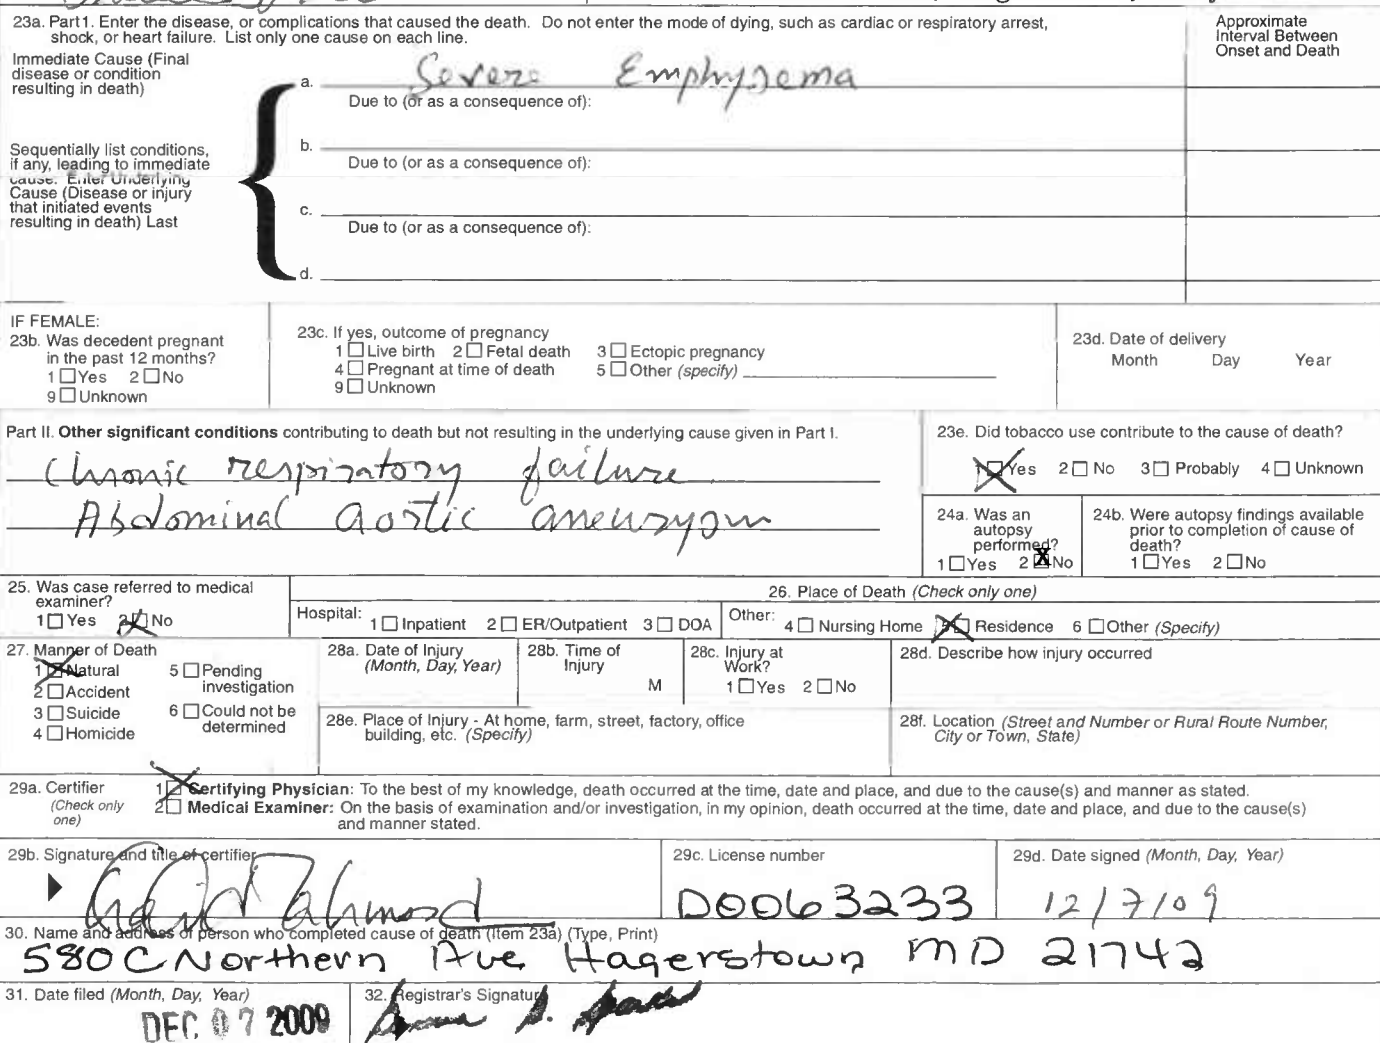 23a. Part1. Enter the disease, or complications that caused the death. Do not enter the mode of dying, such as cardiac or respiratory arrest,
shock, or heart failure. List only one cause on each line.
Approximate
Interval Between
Onset and Death
Immediate Cause (Final
disease or condition
resulting in death)
a. Severe Emphysema
Due to (or as a consequence of):
Sequentially list conditions,
if any, leading to immediate
cause. Enter Underlying
Cause (Disease or injury
that initiated events
resulting in death) Last
b.
Due to (or as a consequence of):
c.
Due to (or as a consequence of):
d.
IF FEMALE:
23b. Was decedent pregnant
in the past 12 months?
1 ☐ Yes 2 ☐ No
9 ☐ Unknown
23c. If yes, outcome of pregnancy
1 ☐ Live birth 2 ☐ Fetal death 3 ☐ Ectopic pregnancy
4 ☐ Pregnant at time of death 5 ☐ Other (specify)
9 ☐ Unknown
23d. Date of delivery
Month Day Year
Part II. Other significant conditions contributing to death but not resulting in the underlying cause given in Part I.
Chronic respiratory failure
Abdominal aortic aneurysm
23e. Did tobacco use contribute to the cause of death?
1 ☒ Yes 2 ☐ No 3 ☐ Probably 4 ☐ Unknown
24a. Was an
autopsy
performed?
1 ☐ Yes 2 ☒ No
24b. Were autopsy findings available
prior to completion of cause of
death?
1 ☐ Yes 2 ☐ No
25. Was case referred to medical
examiner?
1 ☐ Yes 2 ☒ No
26. Place of Death (Check only one)
Hospital: 1 ☐ Inpatient 2 ☐ ER/Outpatient 3 ☐ DOA
Other: 4 ☐ Nursing Home 5 ☒ Residence 6 ☐ Other (Specify)
27. Manner of Death
1 ☒ Natural 5 ☐ Pending
investigation
2 ☐ Accident
3 ☐ Suicide 6 ☐ Could not be
determined
4 ☐ Homicide
28a. Date of Injury
(Month, Day, Year)
28b. Time of
Injury
M
28c. Injury at
Work?
1 ☐ Yes 2 ☐ No
28d. Describe how injury occurred
28e. Place of Injury - At home, farm, street, factory, office
building, etc. (Specify)
28f. Location (Street and Number or Rural Route Number,
City or Town, State)
29a. Certifier
(Check only
one)
1 ☒ Certifying Physician: To the best of my knowledge, death occurred at the time, date and place, and due to the cause(s) and manner as stated.
2 ☐ Medical Examiner: On the basis of examination and/or investigation, in my opinion, death occurred at the time, date and place, and due to the cause(s)
and manner stated.
29b. Signature and title of certifier
Ahmed
29c. License number
D0063233
29d. Date signed (Month, Day, Year)
12/7/09
30. Name and address of person who completed cause of death (Item 23a) (Type, Print)
580C Northern Ave Hagerstown MD 21742
31. Date filed (Month, Day, Year)
DEC 07 2009
32. Registrar's Signature